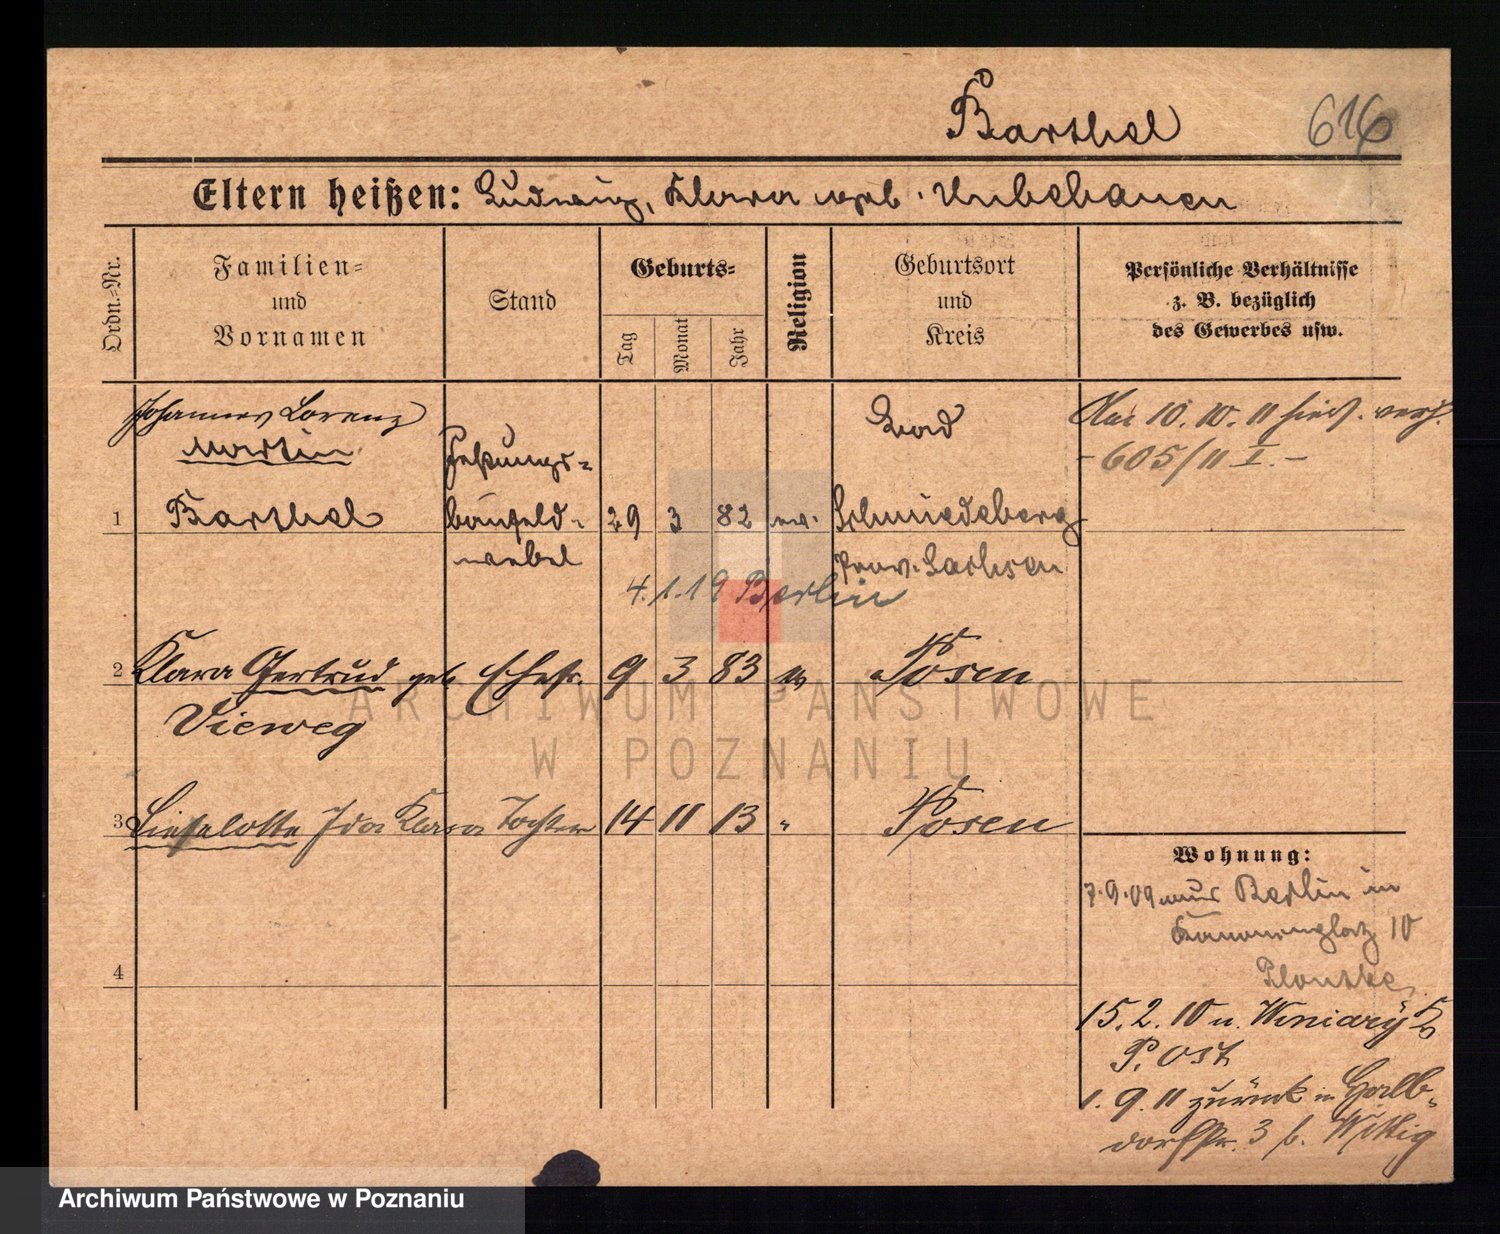 Barthel 616
Eltern heißen: Ludwig, Klara geb. Unbehauen
Ordn.-Nr.
Familien-
und
Vornamen
Stand
Geburts-
Tag
Monat
Jahr
Religion
Geburtsort
und
Kreis
Persönliche Verhältnisse
z. B. bezüglich
des Gewerbes usw.
Johannes Lorenz
Martin
Festungs-
Bad
Am 10. 10. 11 hier verh.
- 605/11 I. -
1 Barthel baufeld- 29 3 82 ev. Schmiedeberg
webel Prov. Sachsen
4.1.19 Berlin
2 Klara Gertrud geb. Ehefr. 9 3 83 ev Posen
Vieweg
3 Lieselotte Ida Klara Tochter 14 11 13 " Posen
4
Wohnung:
7.9.09 aus Berlin in
Kanonenplatz 10
15.2.10 n. Winiary
P. Ost
1.9.11 zurück in Halb-
dorfstr. 3 b. Wittig
ARCHIWUM PAŃSTWOWE
W POZNANIU
Archiwum Państwowe w Poznaniu